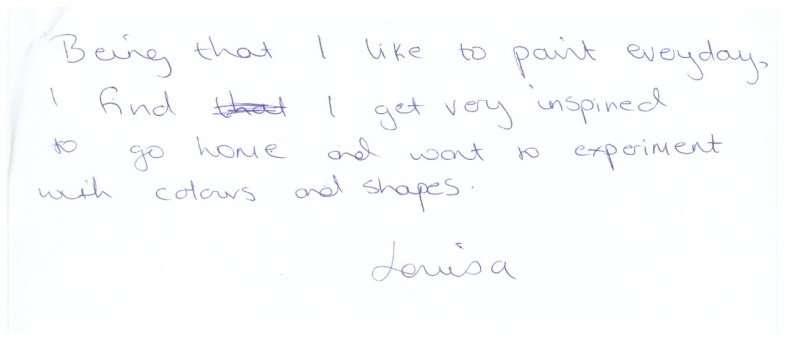 Being that I like to paint everyday,
I find that I get very inspired
to go home and want to experiment
with colours and shapes.
Louisa